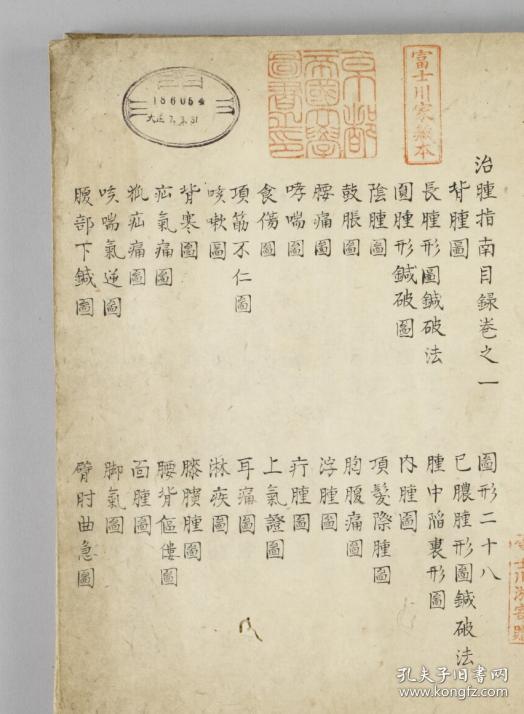 富士川家藏本
京都
帝國大學
圖書之印
186054
大正 7. 3. 31
治腫指南目錄卷之一 圖形二十八
背腫圖 已膿腫形圖鍼破法
長腫形圖鍼破法 腫中陷裏形圖
圓腫形鍼破圖 內腫圖
陰腫圖 項髮際腫圖
鼓脹圖 胸腹痛圖
腰痛圖 浮腫圖
哮喘圖 疔腫圖
食傷圖 上氣證圖
項筋不仁圖 耳痛圖
咳嗽圖 淋疾圖
背寒圖 膝腫圖
疝氣痛圖 腰背傴僂圖
狐疝痛圖 面腫圖
咳喘氣逆圖 脚氣圖
腹部下鍼圖 臂肘曲急圖
士川游寄
孔夫子旧书网
www.kongfz.com